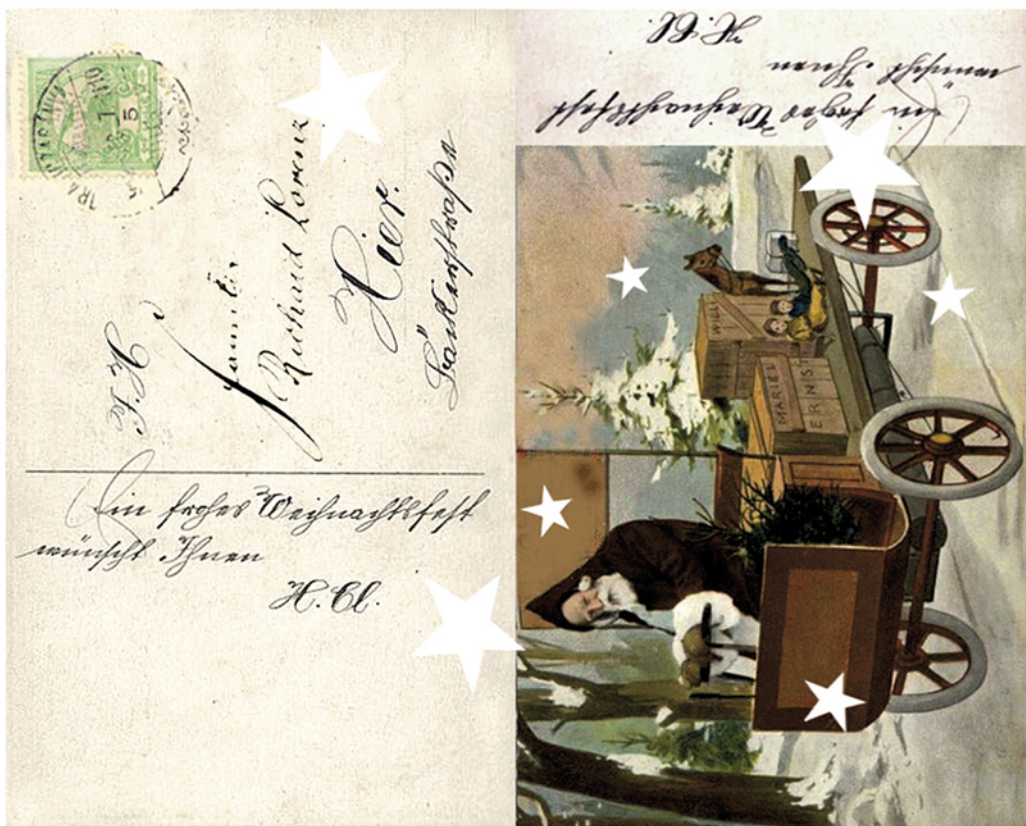 Familie
Richard Lorenz
Hier.
Ein frohes Weihnachtsfest
wünscht Ihnen
H. Cl.
Ein frohes Weihnachtsfest
wünscht Ihnen
H. Cl.
WILLI
MARIE
ERNST